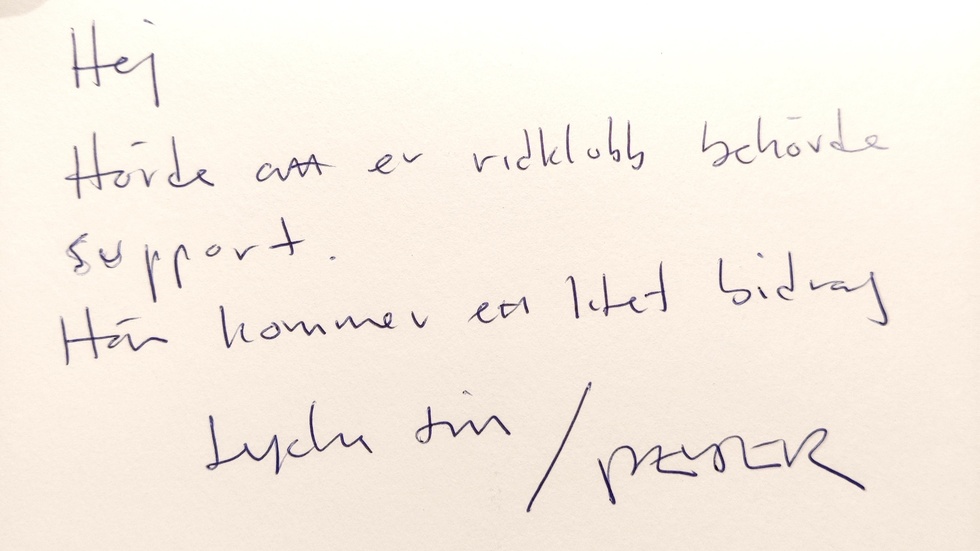 Hej
Hörde att er ridklubb behövde
support.
Här kommer ett litet bidrag
Lycka till / PETER